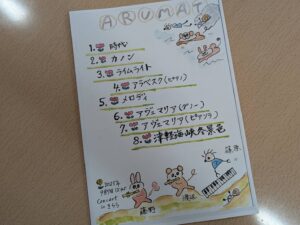 ARUMAT
1. 時代
2. カノン
3. ライムライト
4. アラベスク(ピアノ)
5. メロディ
6. アヴェマリア(グノー)
7. アヴェマリア(ピアソラ)
8. 津軽海峡冬景色
2025年
Concert
in きらら
藤野